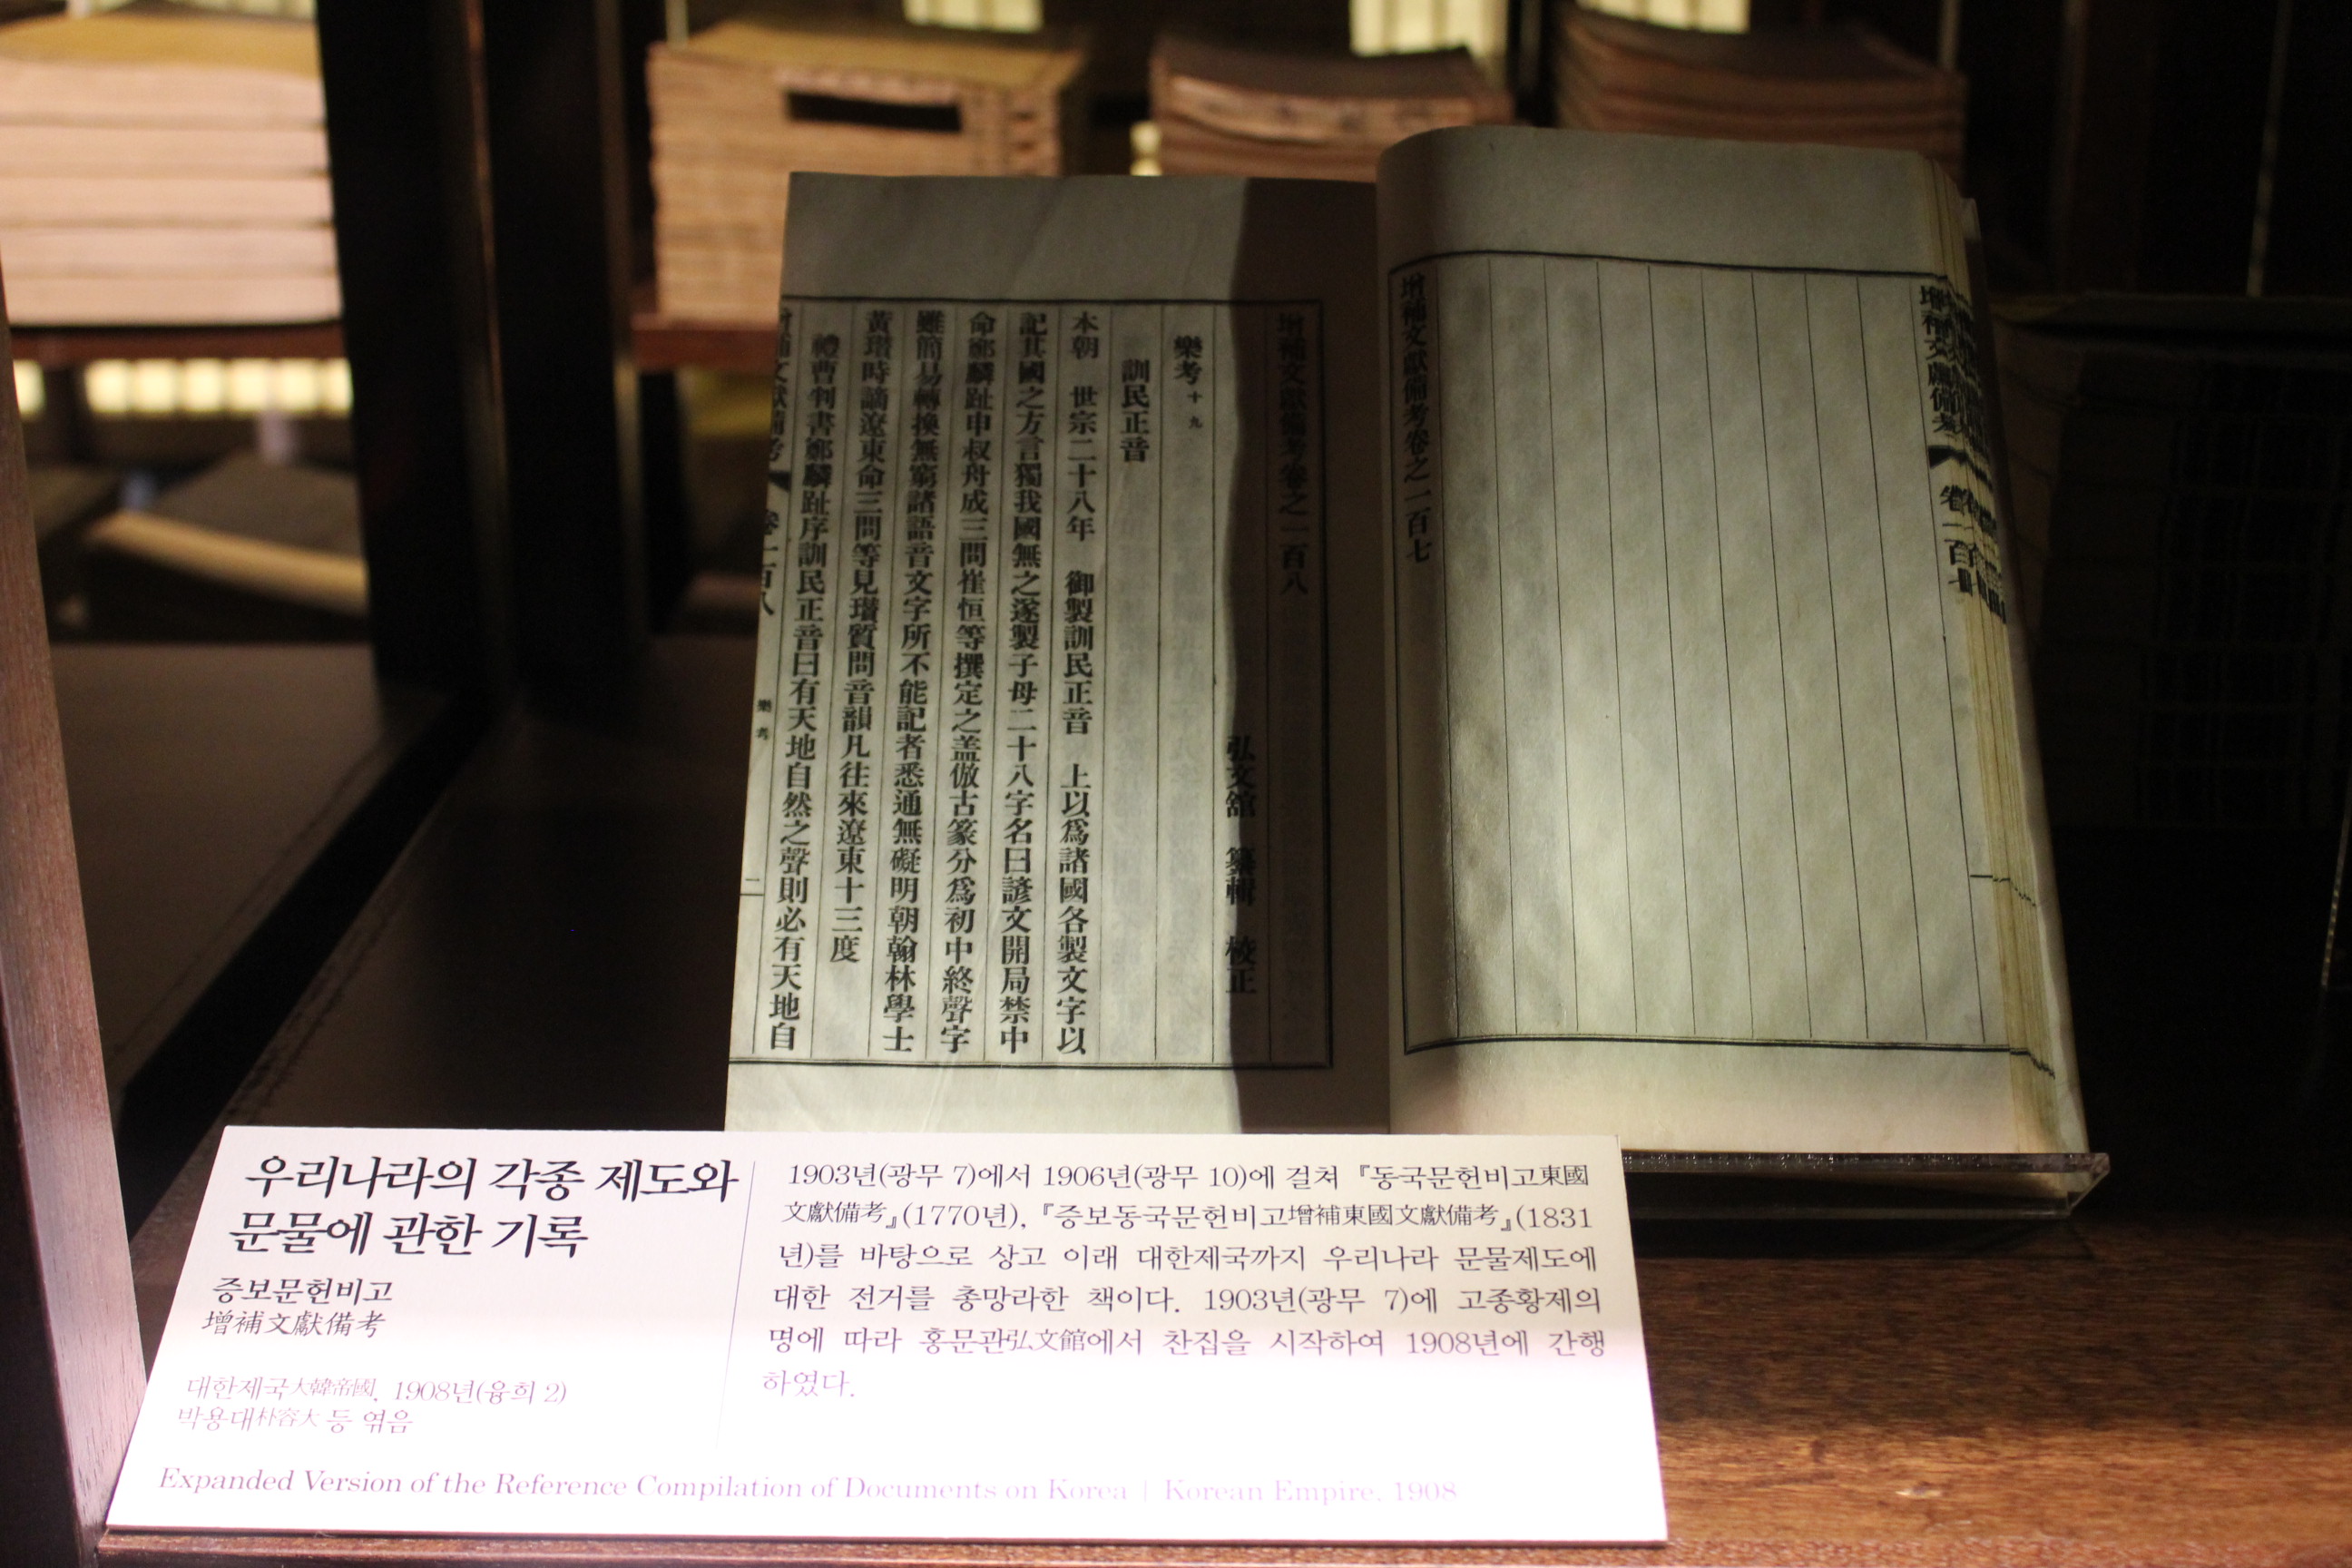 增補文獻備考卷之一百七
增補文獻備考卷之一百八
弘文館 纂輯 校正
樂考十九
訓民正音
本朝 世宗二十八年 御製訓民正音 上以爲諸國各製文字以
記其國之方言獨我國無之遂製子母二十八字名曰諺文開局禁中
命鄭麟趾申叔舟成三問崔恒等撰定之盖倣古篆分爲初中終聲字
雖簡易轉換無窮諸語音文字所不能記者悉通無礙明朝翰林學士
黃瓚時謫遼東命三問等見瓚質問音韻凡往來遼東十三度
禮曹判書鄭麟趾序訓民正音曰有天地自然之聲則必有天地自
樂考
二
우리나라의 각종 제도와
문물에 관한 기록
증보문헌비고
增補文獻備考
대한제국大韓帝國, 1908년(융희 2)
박용대朴容大 등 엮음
1903년(광무 7)에서 1906년(광무 10)에 걸쳐 『동국문헌비고東國
文獻備考』(1770년), 『증보동국문헌비고增補東國文獻備考』(1831
년)를 바탕으로 상고 이래 대한제국까지 우리나라 문물제도에
대한 전거를 총망라한 책이다. 1903년(광무 7)에 고종황제의
명에 따라 홍문관弘文館에서 찬집을 시작하여 1908년에 간행
하였다.
Expanded Version of the Reference Compilation of Documents on Korea | Korean Empire, 1908